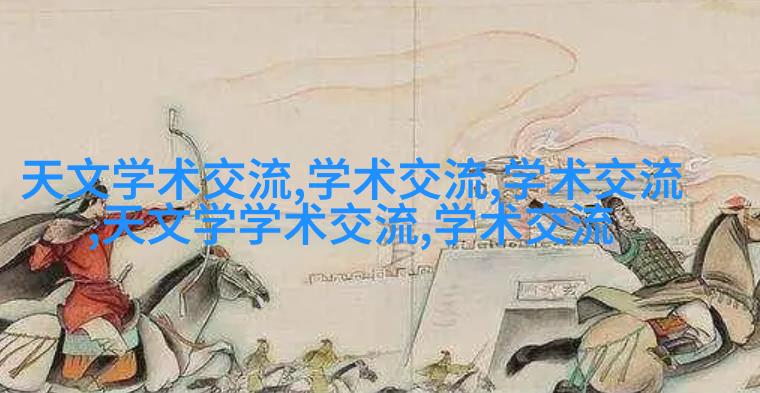 天文学术交流,学术交流,学术交流
,天文学学术交流,学术交流